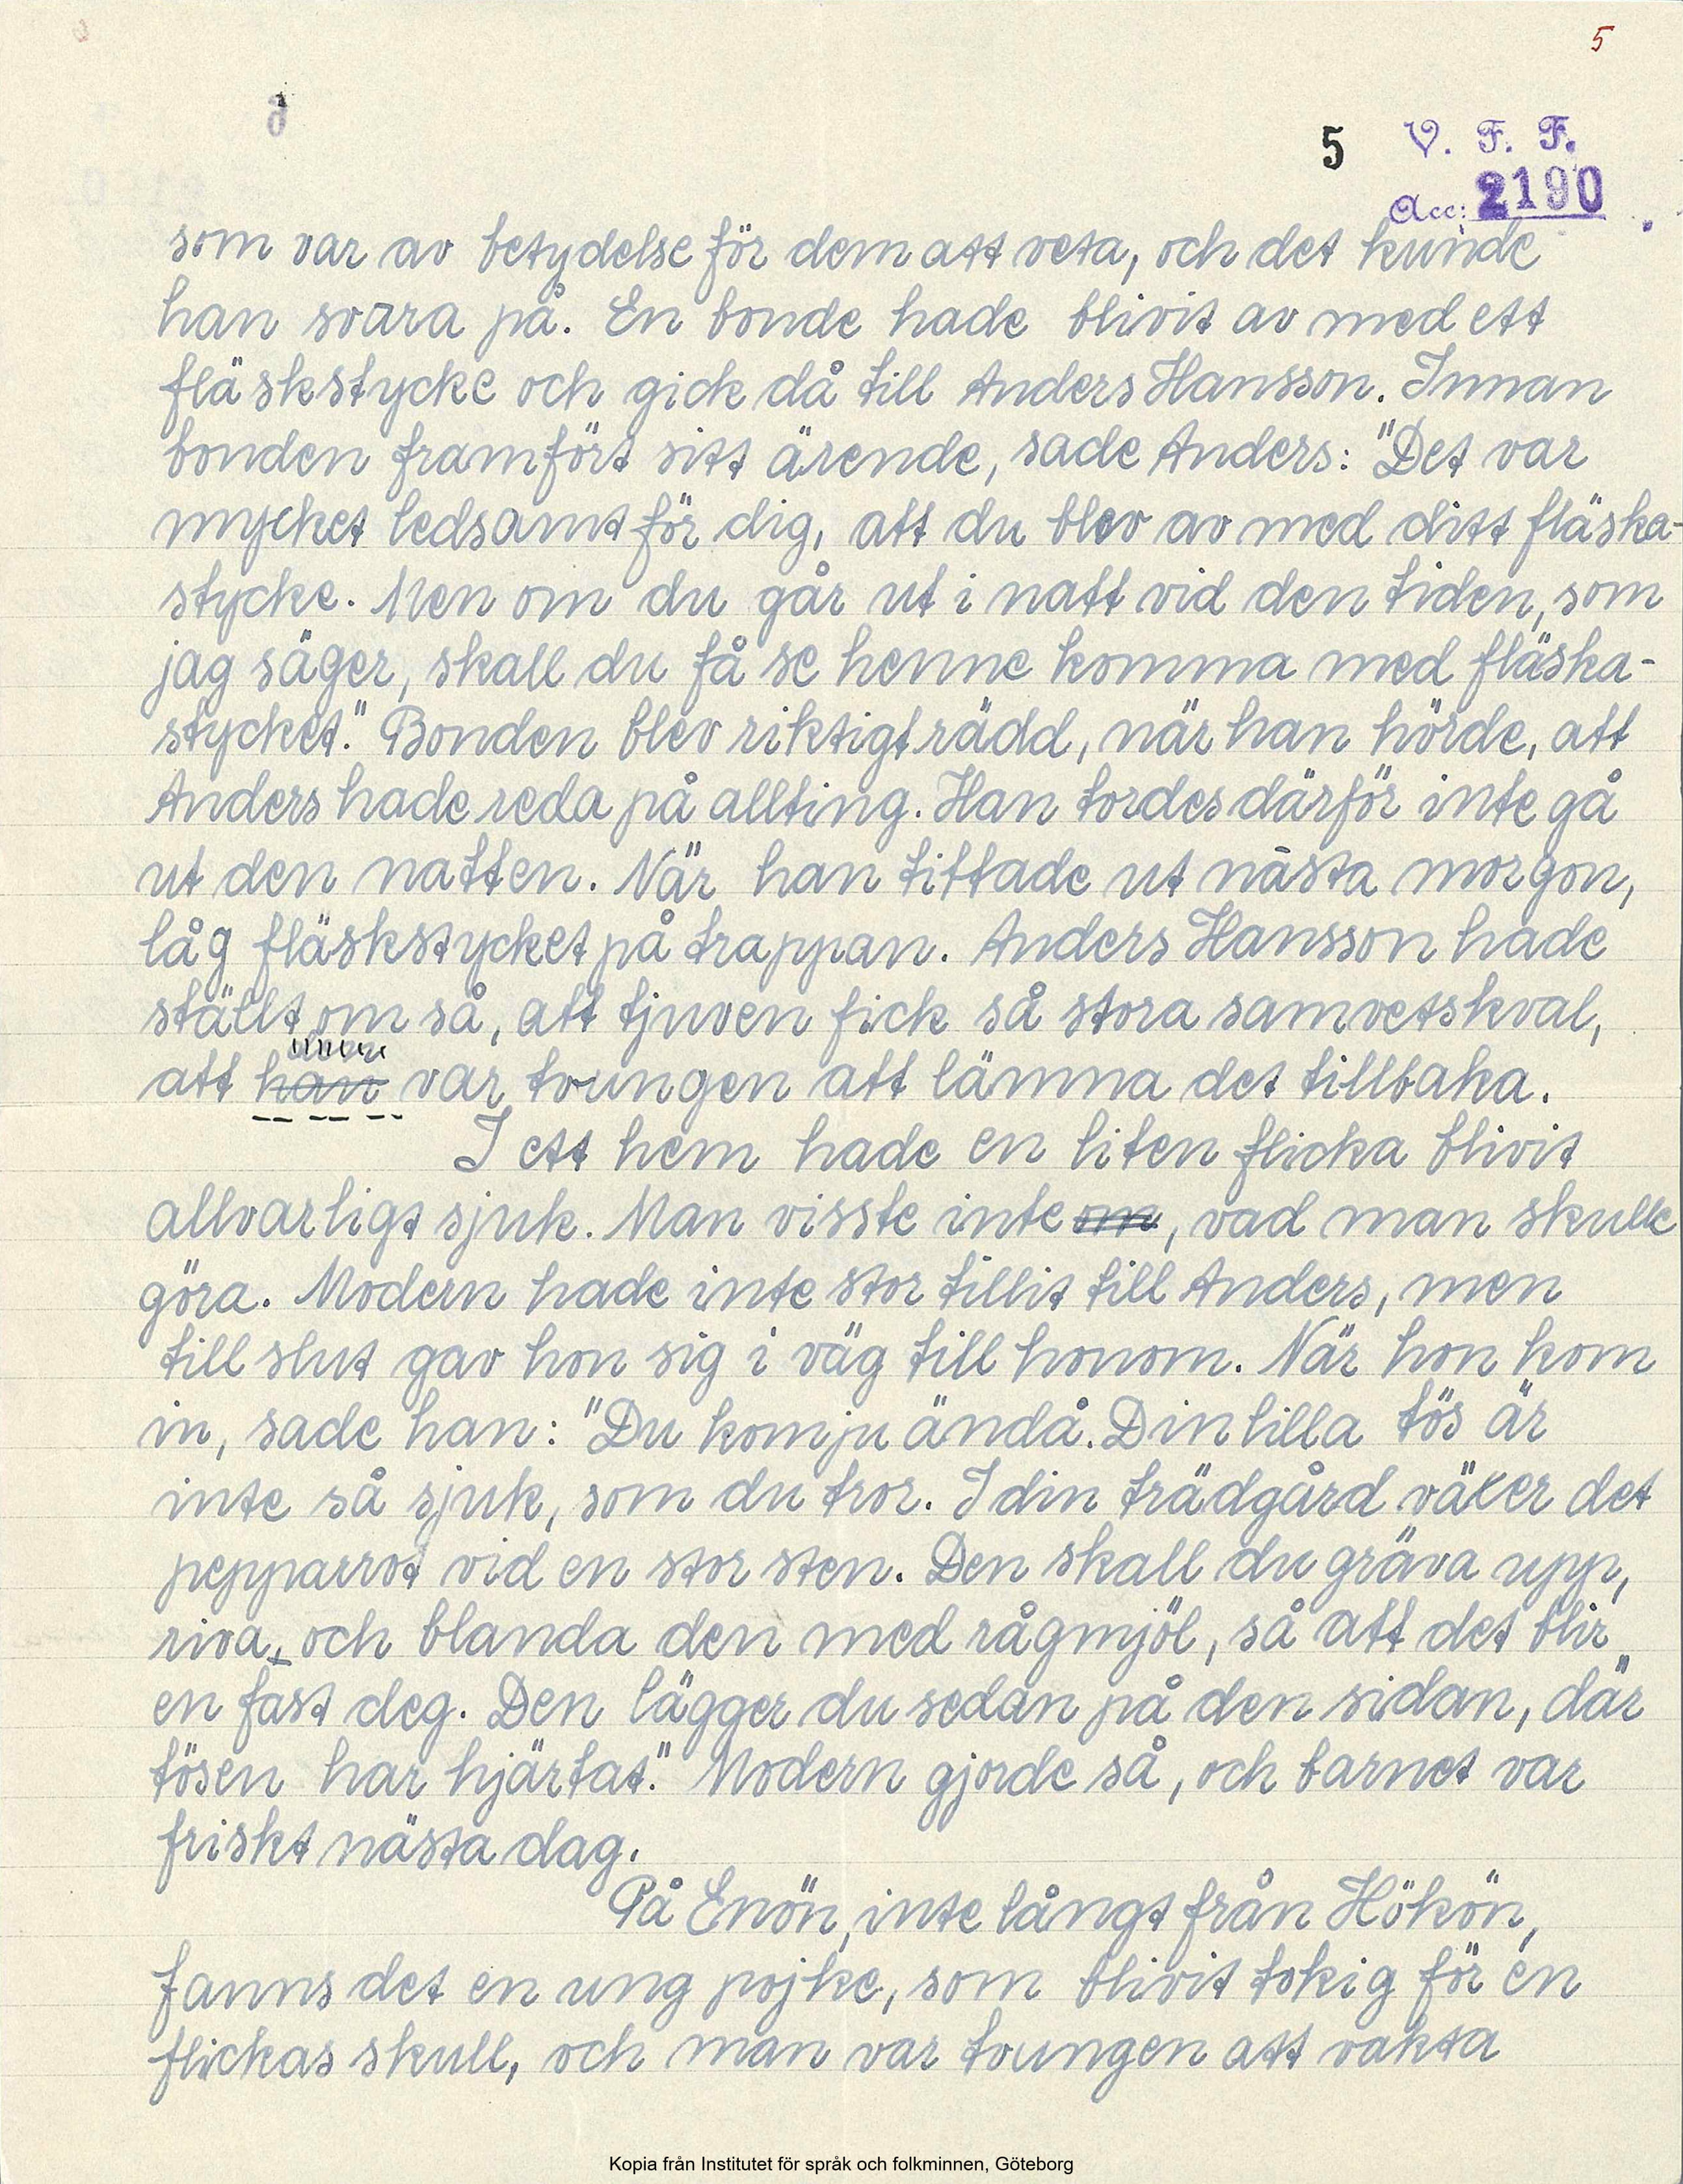 5
5 V. F. F.
Acc: 2190
som var av betydelse för dem att veta, och det kunde
han svara på. En bonde hade blivit av med ett
fläskstycke och gick då till Anders Hansson. Innan
bonden framfört sitt ärende, sade Anders: "Det var
mycket ledsamt för dig, att du blev av med ditt fläska-
stycke. Men om du går ut i natt vid den tiden, som
jag säger, skall du få se henne komma med fläska-
stycket." Bonden blev riktigt rädd, när han hörde, att
Anders hade reda på allting. Han tordes därför inte gå
ut den natten. När han tittade ut nästa morgon,
låg fläskstycket på trappan. Anders Hansson hade
ställt om så, att tjuven fick så stora samvetskval,
att han var tvungen att lämna det tillbaka.
I ett hem hade en liten flicka blivit
allvarligt sjuk. Man visste inte om, vad man skulle
göra. Modern hade inte stor tillit till Anders, men
till slut gav hon sig i väg till honom. När hon kom
in, sade han: "Du kom ju ändå. Din lilla tös är
inte så sjuk, som du tror. I din trädgård växer det
pepparrot vid en stor sten. Den skall du gräva upp,
riva, och blanda den med rågmjöl, så att det blir
en fast deg. Den lägger du sedan på den sidan, där
tösen har hjärtat." Modern gjorde så, och barnet var
friskt nästa dag.
På Enön, inte långt från Hökön,
fanns det en ung pojke, som blivit tokig för en
flickas skull, och man var tvungen att vakta
Kopia från Institutet för språk och folkminnen, Göteborg